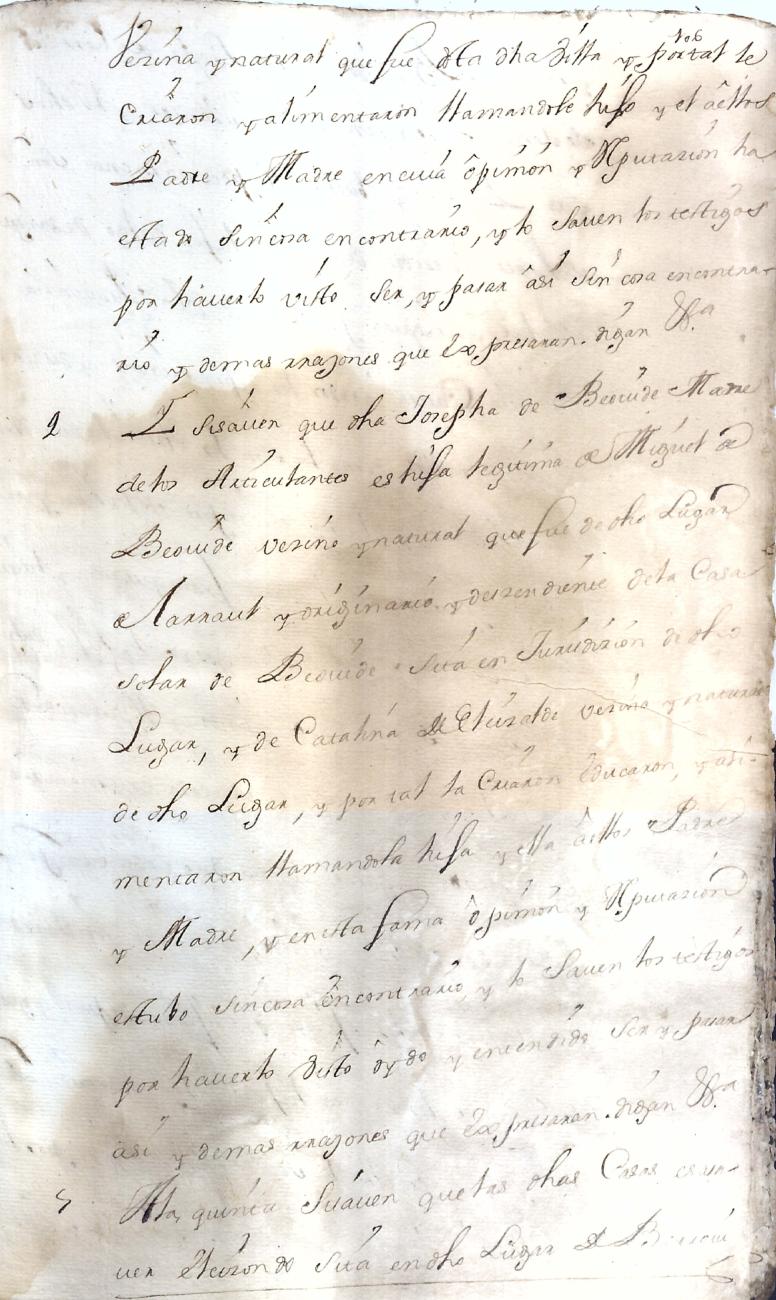 Vezina y natural que fue desta dha Villa y por tal le
Criaron y alimentaron llamandole hijo y el aellos
Padre y Madre encuia opinion y Reputazion ha
estado sin cosa en contrario, y lo saven los testigos
por haverlo visto ser, y pasar asi sin cosa encontra-
rio y demas rrazones que expresaran. digan &ª.
Y si saven que dha Josepha de Beovide Madre
de los Articulantes es hija legitima de Miguel de
Beovide vezino y natural que fue de dho Lugar
de Narraut y originario y deszendiente dela Casa
solar de Beovide sita en Jurisdizion de dho
Lugar, y de Catalina de Elizalde vezina y natural
de dho Lugar, y por tal la Criaron educaron, y ali-
mentaron llamandola hija y ella aellos Padre
y Madre, y en esta fama opinion y Reputazion
estubo sin cosa encontrario, y lo Saven los testigos
por haverlo visto oydo y entendido Ser y pasar
asi y demas rrazones que expresaran. digan &ª.
5 A la quinta Si saven que las dhas Casas es a sa-
ver Elizondo sita en dho Lugar de